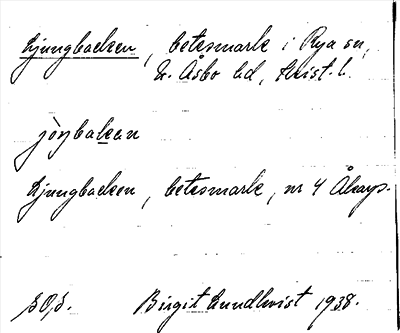 Ljungbacken, betesmark i Rya sn,
N. Åsbo hd, Krist. l.
jòŋbakan
Ljungbacken, betesmark, nr 4 Åkarp.
Birgit Lundkvist 1938.